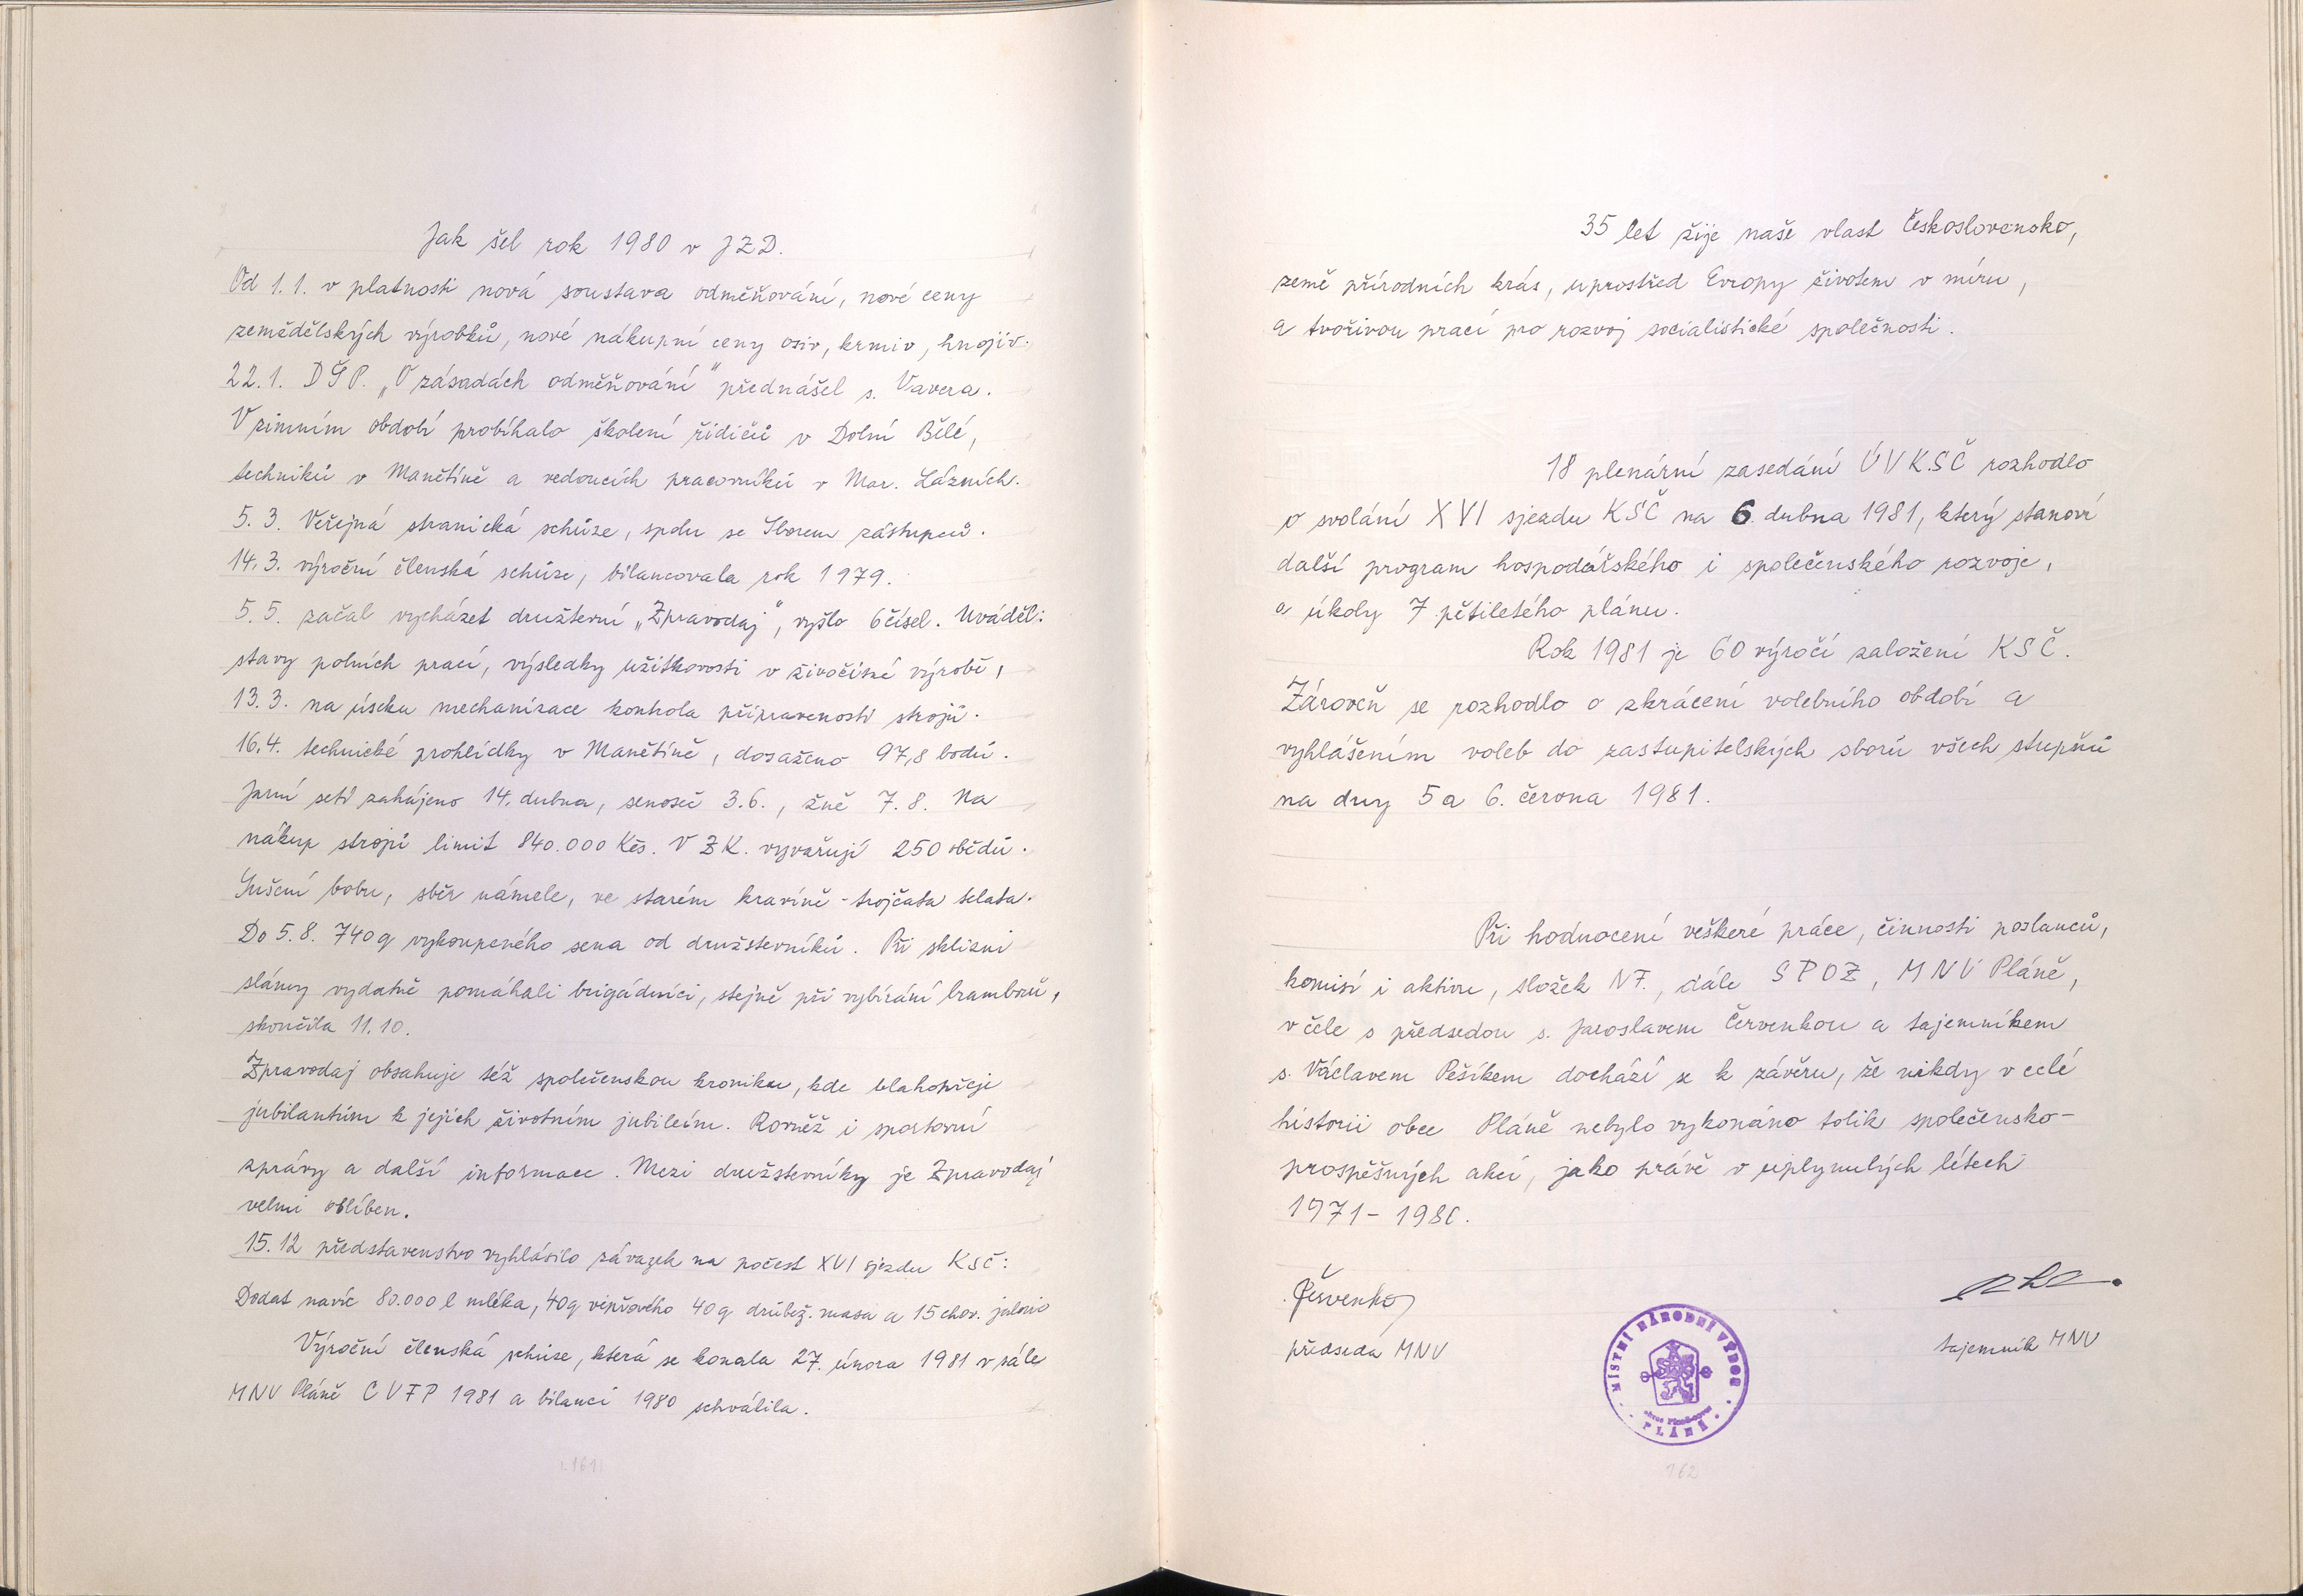 Jak šel rok 1980 v JZD.
Od 1.1. v platnosti nová soustava odměňování, nové ceny
zemědělských výrobků, nové nákupní ceny osiv, krmiv, hnojiv.
22.1. DŠP. „O zásadách odměňování" přednášel s. Vavera.
V zimním období probíhalo školení řidičů v Dolní Bělé,
techniků v Manětíně a vedoucích pracovníků v Mar. Lázních.
5.3. Veřejná stranická schůze, spolu se Sborem zástupců.
14.3. výroční členská schůze, bilancovala rok 1979.
5.5. začal vycházet družstevní „Zpravodaj", vyšlo 6 čísel. Uváděl:
stavy polních prací, výsledky užitkovosti v živočišné výrobě,
13.3. na úseku mechanizace kontrola připravenosti strojů.
16.4. technické prohlídky v Manětíně, dosaženo 97,8 bodů.
Jarní setí zahájeno 14. dubna, senoseč 3.6., žně 7.8. Na
nákup strojů limit 840.000 Kčs. V ZK. vyvařují 250 obědů.
Sušení bobu, sběr námele, ve starém kravíně - trojčata telata.
Do 5.8. 740 q vykoupeného sena od družstevníků. Při sklizni
slámy vydatně pomáhali brigádníci, stejně při vybírání brambor,
skončila 11.10.
Zpravodaj obsahuje též společenskou kroniku, kde blahopřeje
jubilantům k jejich životním jubileím. Rovněž i sportovní
zprávy a další informace. Mezi družstevníky je Zpravodaj
velmi oblíben.
15.12 představenstvo vyhlásilo závazek na počest XVI sjezdu KSČ:
Dodat navíc 80.000 l mléka, 40q vepřového 40q drůbež. masa a 15 chov. jalovic
Výroční členská schůze, která se konala 27. února 1981 v sále
MNV Pláně CVFP 1981 a bilanci 1980 schválila.
161
35 let žije naše vlast Československo,
země přírodních krás, uprostřed Evropy životem v míru,
a tvořivou prací pro rozvoj socialistické společnosti.
18 plenární zasedání ÚV KSČ rozhodlo
o svolání XVI sjezdu KSČ na 6. dubna 1981, který stanoví
další program hospodářského i společenského rozvoje,
a úkoly 7 pětiletého plánu.
Rok 1981 je 60 výročí založení KSČ.
Zároveň se rozhodlo o zkrácení volebního období a
vyhlášením voleb do zastupitelských sborů všech stupňů
na dny 5 a 6. června 1981.
Při hodnocení veškeré práce, činnosti poslanců,
komisí i aktivu, složek NF., dále SPOZ, MNV Pláně,
v čele s předsedou s. Jaroslavem Červenkou a tajemníkem
s. Václavem Pešíkem dochází se k závěru, že nikdy v celé
historii obce Pláně nebylo vykonáno tolik společensko-
prospěšných akcí, jako právě v uplynulých létech
1971-1980.
Červenka
předseda MNV
tajemník MNV
MÍSTNÍ NÁRODNÍ VÝBOR
PLÁNĚ
162